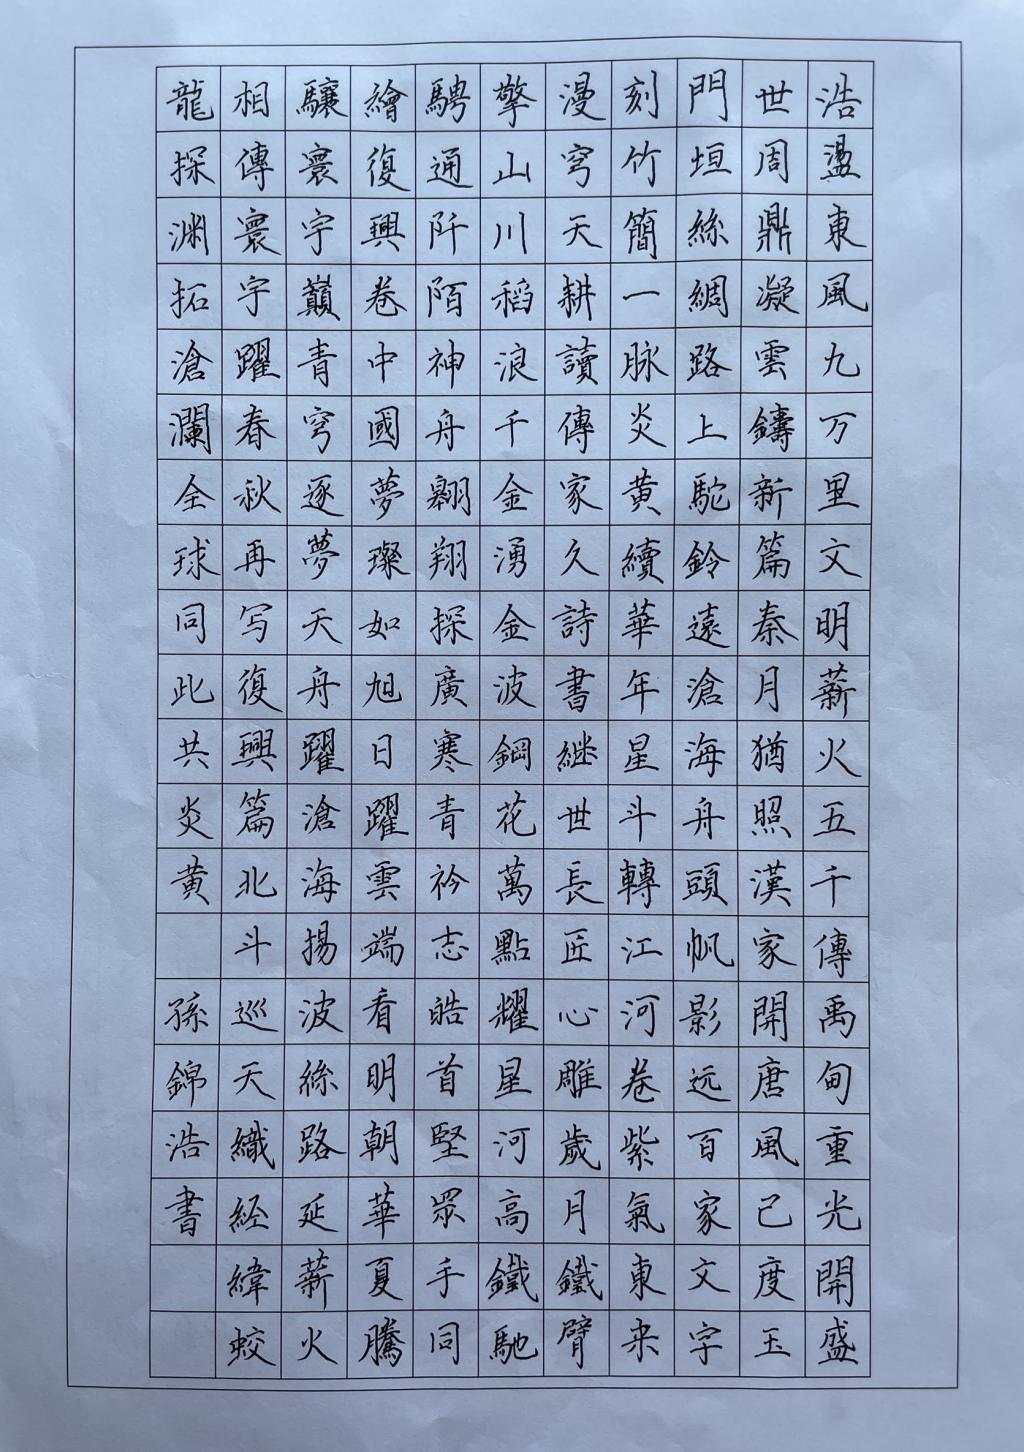 浩盪東風九万里文明薪火五千傳禹甸重光開盛
世周鼎凝雲鑄新篇秦月猶照漢家開唐風已度玉
門垣絲綢路上駝鈴遠滄海舟頭帆影远百家文字
刻竹簡一脉炎黃續華年星斗轉江河卷紫氣東来
漫穹天耕讀傳家久詩書継世長匠心雕歲月鐵臂
擎山川稻浪千金湧金波鋼花萬點耀星河高鐵馳
騁通阡陌神舟翱翔探廣寒青衿志皓首堅眾手同
繪復興卷中國夢璨如旭日躍雲端看明朝華夏騰
驤寰宇巔青穹逐夢天舟躍滄海揚波絲路延薪火
相傳寰宇躍春秋再写復興篇北斗巡天織経緯蛟
龍探渊拓滄瀾全球同此共炎黃 孫錦浩書